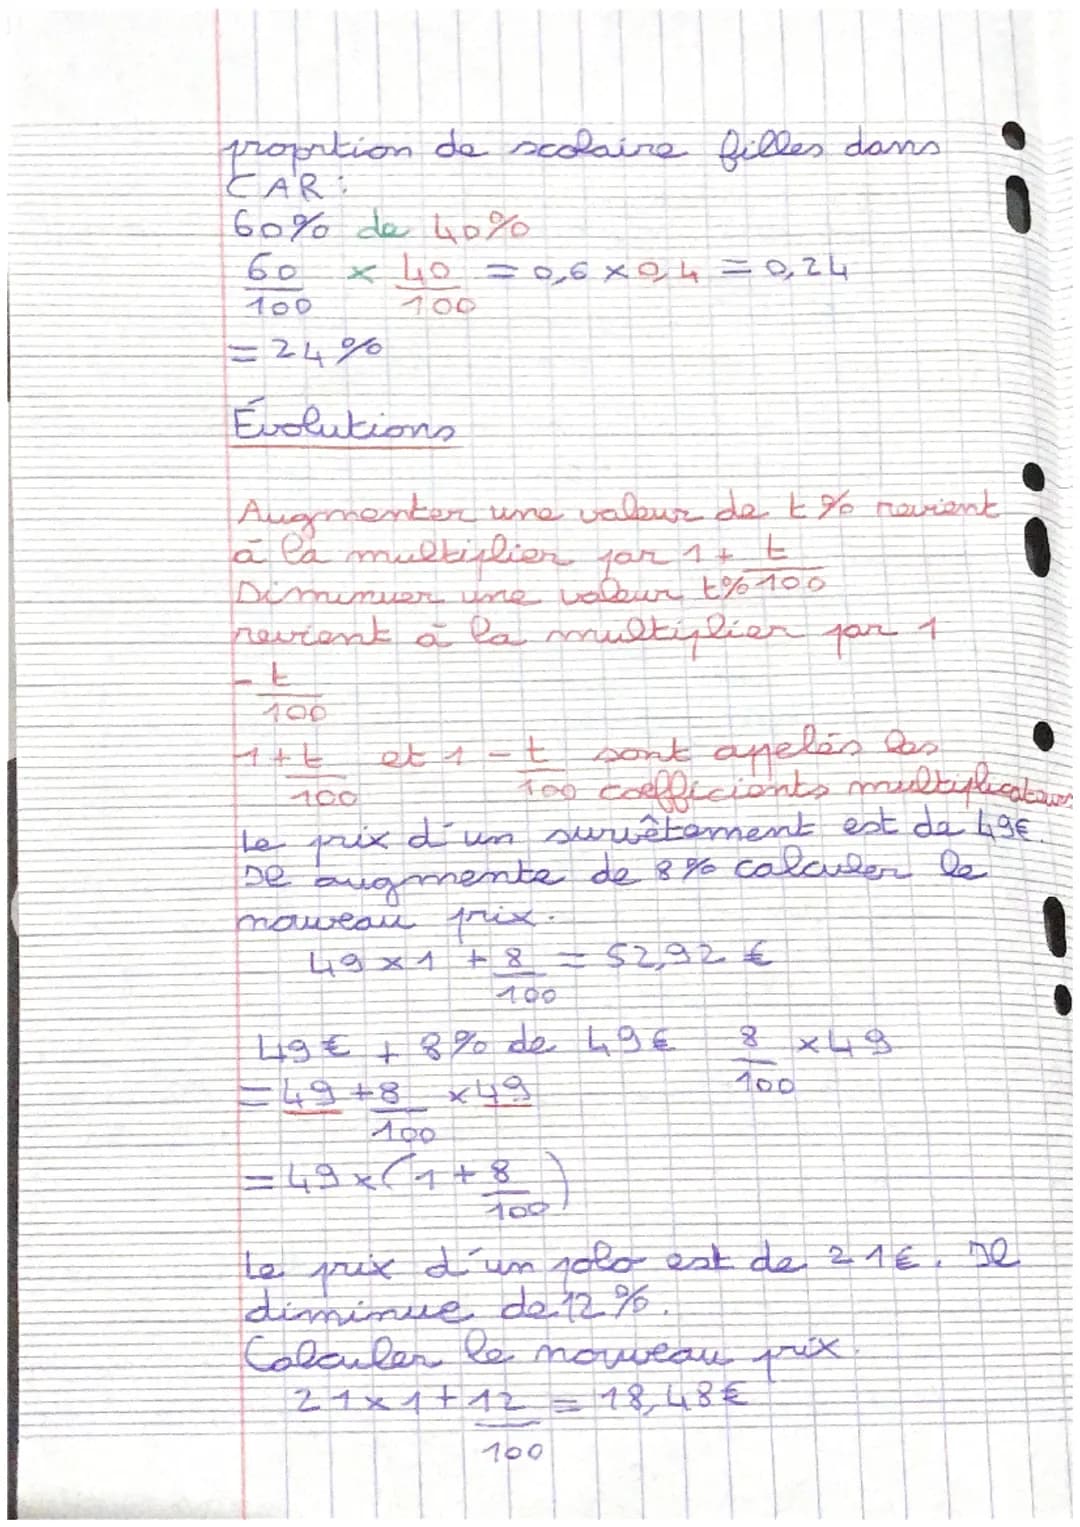 proportion de scolaire filles dans
CAR :
60% de 40%
60/100 × 40/100 = 0,6 × 0,4 = 0,24
= 24%
Évolutions
Augmenter une valeur de t% revient
à la multiplier par 1 + t/100
Diminuer une valeur t%
revient à la multiplier par 1
- t/100
1 + t/100 et 1 - t/100 sont appelés les
coefficients multiplicateurs
Le prix d'un survêtement est de 49€.
Il augmente de 8% calculer le
nouveau prix.
49 × 1 + 8/100 = 52,92 €
49€ + 8% de 49€ 8/100 × 49
= 49 + 8/100 × 49
= 49 × (1 + 8/100)
Le prix d'un polo est de 21€. Il
diminue de 12%.
Calculer le nouveau prix.
21 × 1 + 12/100 = 18,48€